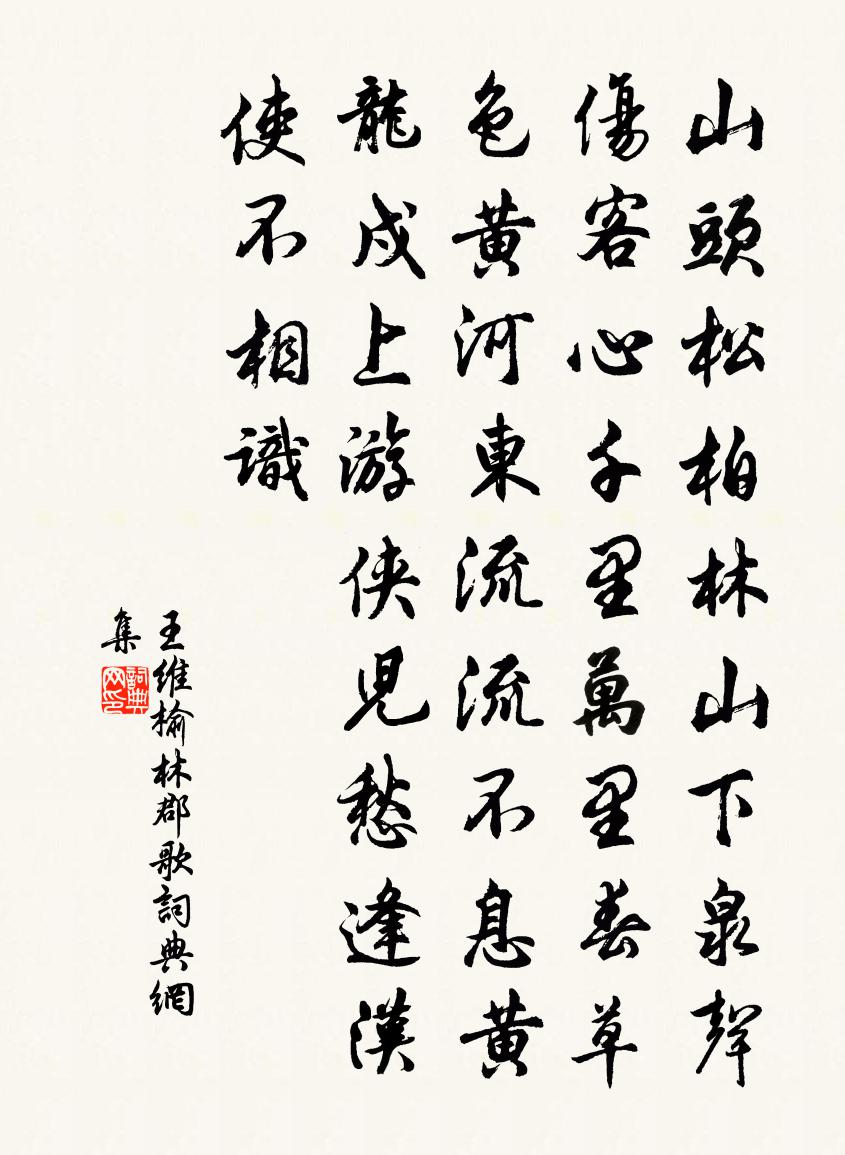 山頭松柏林山下泉聲
傷客心千里萬里春草
色黄河東流流不息黄
龍戍上游俠児愁逢漢
使不相識
王維榆林郡歌詞典網
集
詞典网印